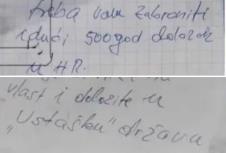 treba vam zabraniti
idući 500 god dolazak
u HR.
vlast i dolazite u
"Ustašku" državu